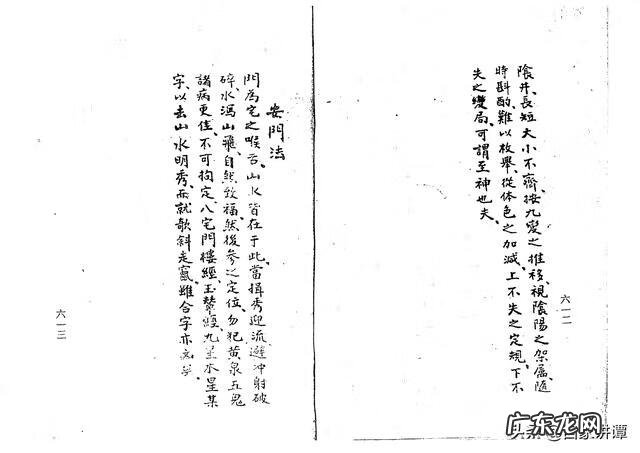 陰井、長短大小不齊、按九變之推移、視陰陽之架屬、隨
時斟酌、難以枚舉、從体色之加減、上不失之定規、下不
失之變局、可謂至神也夫、
六一二
安門法
門為宅之喉舌、山水皆在于此、當揖秀迎流、避冲射破
碎、水瀉山飛、自然致福、然後參之定位、勿犯黄泉五鬼
諸病更佳、不可拘定、八宅門樓經、玉輦經、九星木星某
字、以去山水明秀、而就欹斜走竄、雖合字亦
六一三
广东龙网
头条 @百家讲谭